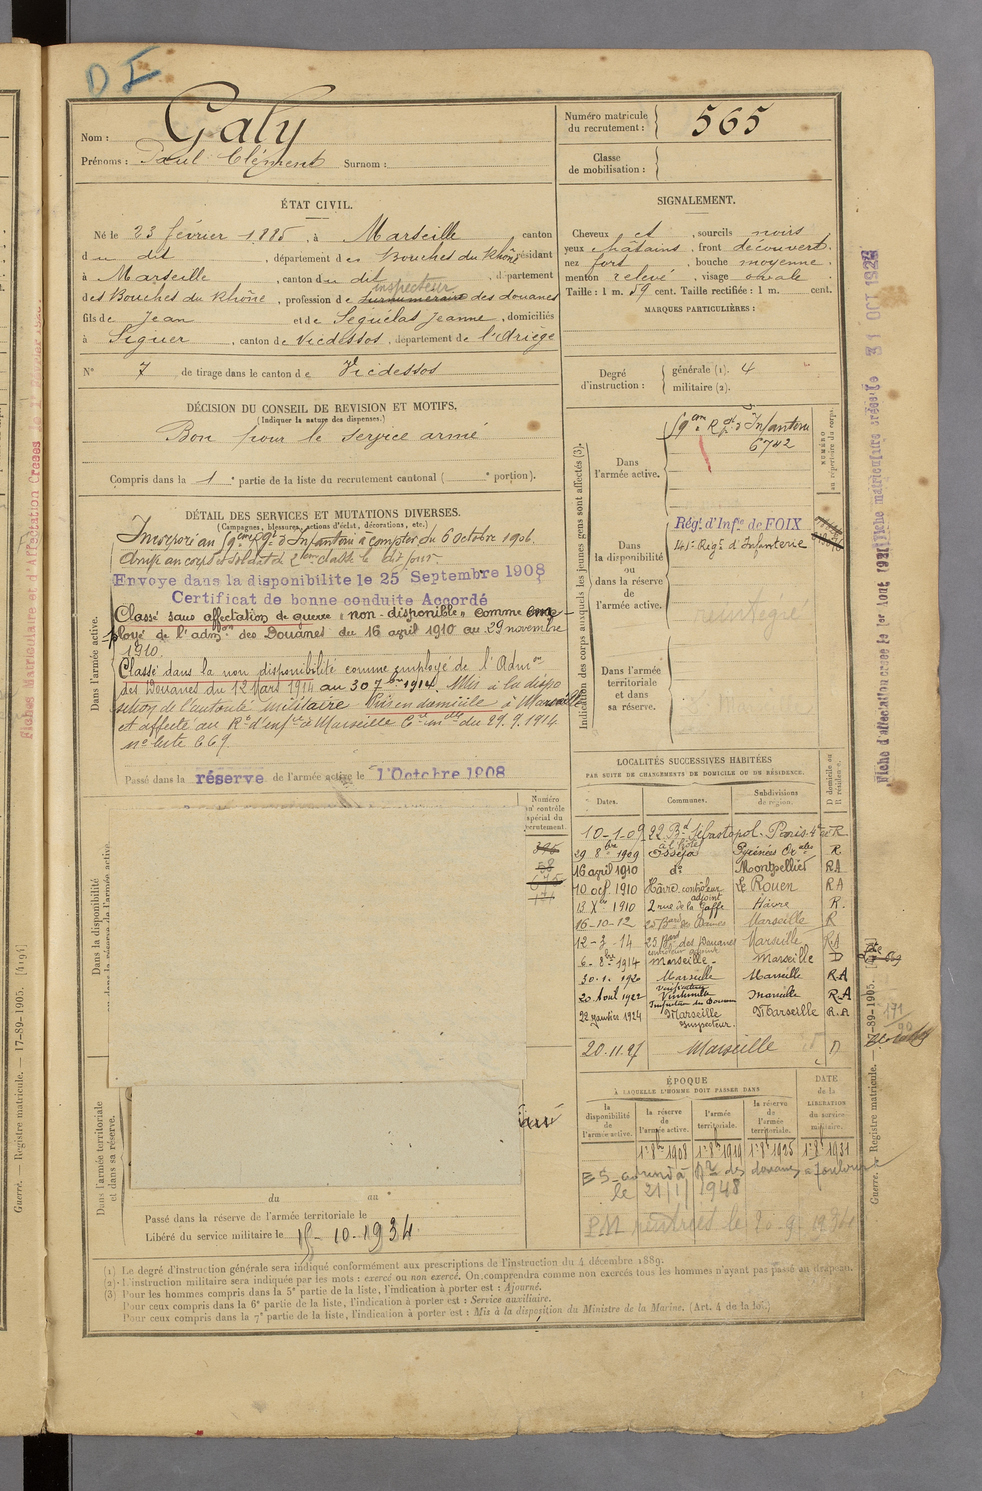 D I
Nom : Galy
Prénoms : Paul Clément Surnom :
Numéro matricule
du recrutement : 565
Classe
de mobilisation :
ÉTAT CIVIL.
Né le 23 février 1885, à Marseille canton
du dit, département des Bouches du Rhône, résidant
à Marseille, canton du dit, département
inspecteur
des Bouches du Rhône, profession de surnuméraire des douanes
fils de Jean et de Seguélas Jeanne, domiciliés
à Siguer, canton de Vicdessos, département de l'Ariège
N° 7 de tirage dans le canton de Vicdessos
SIGNALEMENT.
Cheveux et, sourcils noirs
yeux châtains, front découvert.
nez fort, bouche moyenne.
menton relevé, visage ovale.
Taille : 1 m. 59 cent. Taille rectifiée : 1 m. cent.
MARQUES PARTICULIÈRES :
Degré
d'instruction :
générale (1). 4
militaire (2).
DÉCISION DU CONSEIL DE REVISION ET MOTIFS.
(Indiquer la nature des dispenses.)
Bon pour le service armé
Compris dans la 1e partie de la liste du recrutement cantonal ( e portion).
DÉTAIL DES SERVICES ET MUTATIONS DIVERSES.
(Campagnes, blessures, actions d'éclat, décorations, etc.)
Dans l'armée active.
Incorporé au 59eme Rgt d'Infanterie à compter du 6 Octobre 1906.
Arrivé au corps et soldat de 2eme classe le dit jour.
Envoyé dans la disponibilite le 25 Septembre 1908
Certificat de bonne conduite Accordé
Classé sans affectation de guerre "non-disponible" comme em-
ployé de l'admon des Douanes du 16 avril 1910 au 29 novembre
1910.
Classé dans la non disponibilité comme employé de l'Admon
des Douanes du 12 Mars 1914 au 30 7bre 1914. Mis à la dispo
sition de l'autorité militaire
et affecté au Rt d'Infie à Marseille du 29.9.1914
n° liste 669.
Passé dans la réserve de l'armée active le 1 Octobre 1908
Indication des corps auxquels les jeunes gens sont affectés (3).
NUMÉRO
au répertoire du corps.
Dans
l'armée active.
59eme Rgt d'Infanterie
6742
Dans
la disponibilité
ou
dans la réserve
de
l'armée active.
Régt. d'Infie de FOIX
141e Régt d'Infanterie
réintégré
Dans l'armée
territoriale
et dans
sa réserve.
Marseille
LOCALITÉS SUCCESSIVES HABITÉES
PAR SUITE DE CHANGEMENTS DE DOMICILE OU DE RÉSIDENCE.
Dates. Communes. Subdivisions
de région. D domicile ou
R résidence.
10-1-09 22 Bd Sébastopol. Paris R
29 8bre 1909 Osséja Pyrénées Orales R
16 avril 1910 do Montpellier RA
10 oct. 1910 Hâvre controleur adjoint Le Rouen RA
13 Xbre 1910 2 rue de la Gaffe Hâvre R.
16-10-12 25 Bard des Dames Marseille R
12-3-14 25 Bard des Douanes Marseille RA
6-8bre 1914 Marseille - Marseille D
30.1.1920 Marseille Marseille R.A
20 Aout 1922 Vintimille Marseille R.A
22 janvier 1924 Marseille Inspecteur. Marseille R.A
20.11.27 Marseille D
Numéro
au contrôle
spécial du
recrutement.
Dans la disponibilité
ou dans la réserve de l'armée active.
Dans l'armée territoriale
et dans sa réserve.
ÉPOQUE
À LAQUELLE L'HOMME DOIT PASSER DANS
DATE
de la
LIBÉRATION
du service
militaire.
la
disponibilité
de
l'armée active.
la réserve
de
l'armée active.
l'armée
territoriale.
la réserve
de
l'armée
territoriale.
1er 8bre 1908 1er 8bre 1919 1er 8bre 1925 1er 8bre 1931
des douanes à Toulouse
le 21/1/1948
du au
Passé dans la réserve de l'armée territoriale le
Libéré du service militaire le 15-10-1934
(1) Le degré d'instruction générale sera indiqué conformément aux prescriptions de l'instruction du 4 décembre 1889.
(2) L'instruction militaire sera indiquée par les mots : exercé ou non exercé. On comprendra comme non exercés tous les hommes n'ayant pas passé au drapeau.
(3) Pour les hommes compris dans la 5e partie de la liste, l'indication à porter est : Ajourné.
Pour ceux compris dans la 6e partie de la liste, l'indication à porter est : Service auxiliaire.
Pour ceux compris dans la 7e partie de la liste, l'indication à porter est : Mis à la disposition du Ministre de la Marine. (Art. 4 de la loi.)
Guerre. — Registre matricule. — 17-89-1905. [4194]
Guerre. — Registre matricule. — 17-89-1905.
171
90